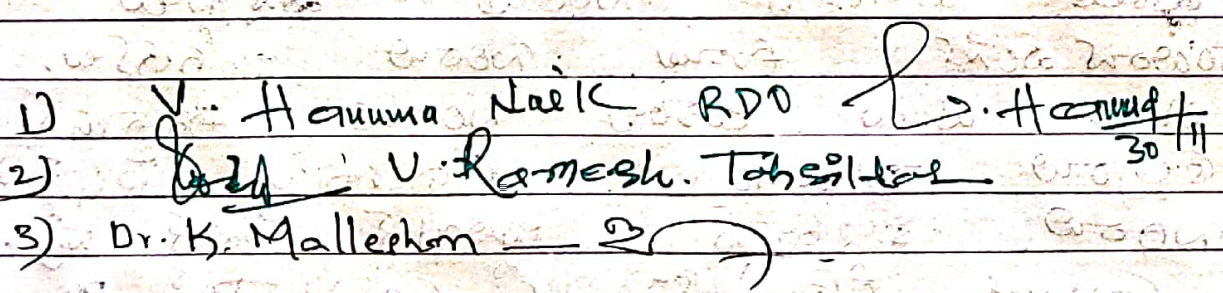 1) V. Hanuma Naik RDO V. Hanuma 30/11
2) V. Ramesh. Tahsildar
3) Dr. K. Mallesham